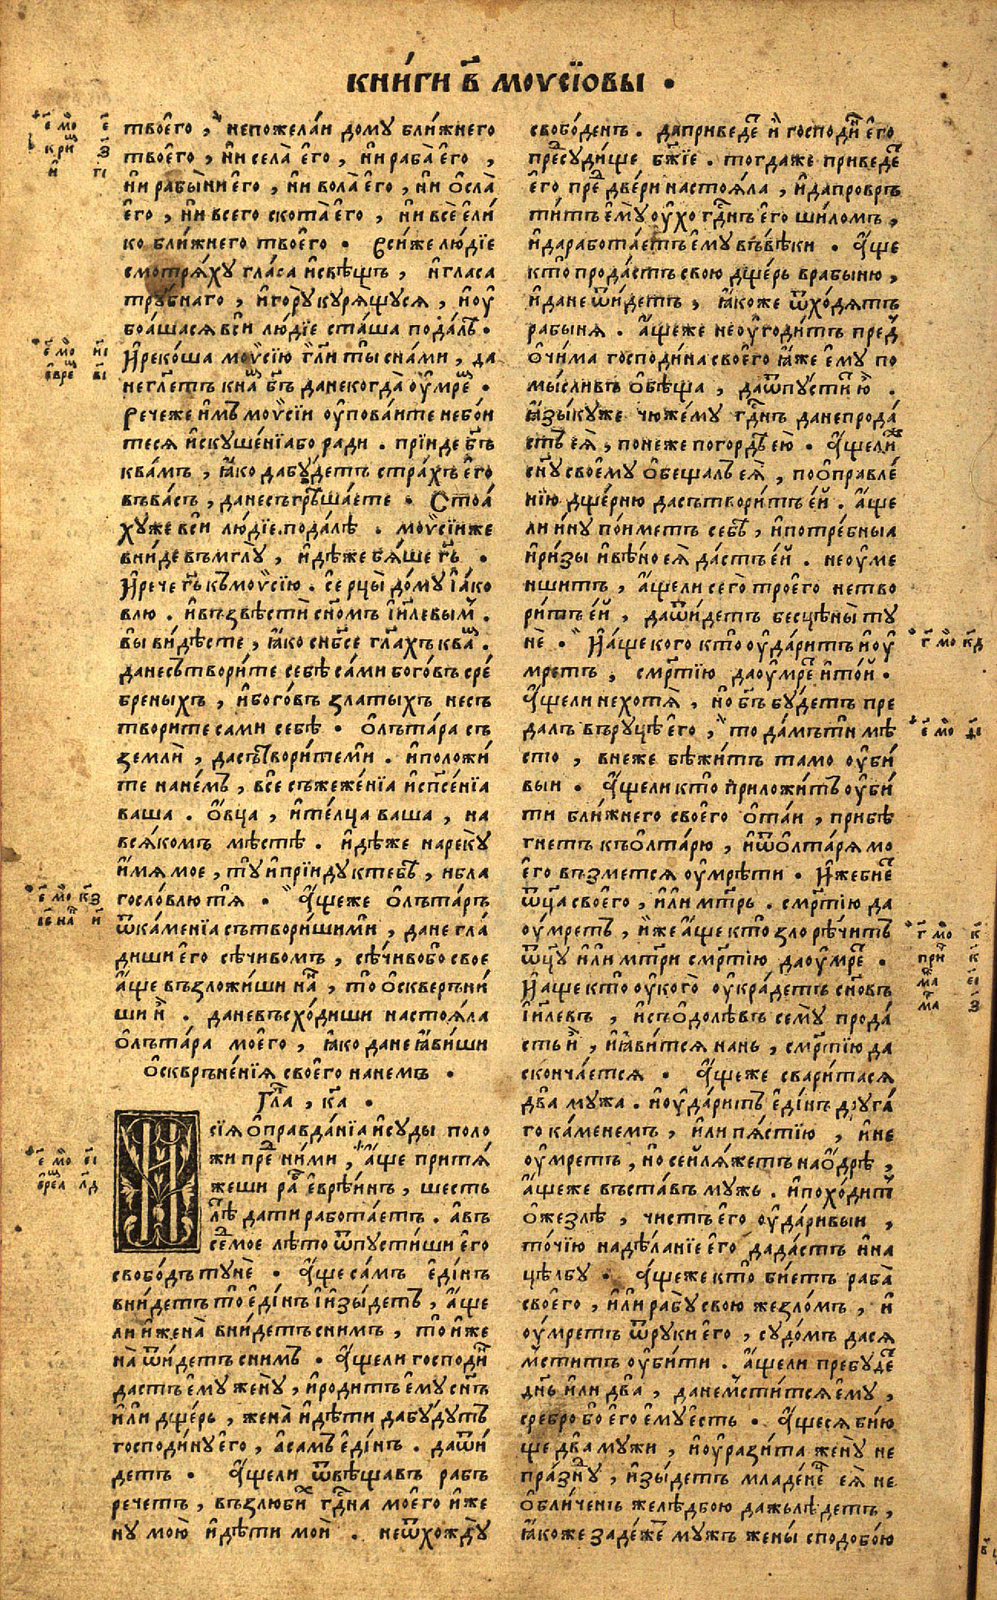 КНИ́ГИ В҃ МОѴСІ́ОВЫ .
твоего̀ , непожела́и дому бли́жнего
твоего , ни села̀ его , ни раба̀ его ,
ни рабы́ни его , ни вола̀ его , ни осла̀
его , ни всего скота̀ его , ни всѐ ели́
ко бли́жнего твоего . Вси́же лю́дїе
смотря́ху гла́са исвѣщъ , игласа
тру́бнаго , игору̀ куря́щуся , иоу
боа́шася вси лю́дїе ста́ша пода́лъ .
Ирекоша моѵсїю гл҃и ты снами , да
неглетъ кна бг҃ъ данекогда̀ оумре .
Речеже имъ моѵсїи оупова́ите небо́и
теся искуше́нїа бо ради . прїиде бг҃ъ
ква́мъ , ꙗко дабу́детъ стра́хъ его
въва́съ , данесъгрѣша́ете . Стоа́
ху́же вси лю́дїе пода́лѣ . моѵсїиже
вни́де въмглу̀ , идѣже бя́ше г҃ь .
Ирече г҃ь къмоѵсїю . се рцы̀ до́му їа́ко
влю . ивъзвѣсти сн҃омъ ї҃илевым .
вы ви́дѣсте , ꙗко снб҃се гл҃ахъ ква .
данесътвори́те себѣ са́ми бого́въ сре́
бреныхъ , ибого́въ златы́хъ несъ
творите сами себѣ . олъта́ра съ
землѝ , дасътвори́теми . иположи́
те нане́мъ , все съжеже́нїа испсе́нїа
ваша . овца , ите́лца ваша , на
вся́комъ мѣстѣ . идѣже нареку̀
и́мя мое , ту иприиду ктебѣ , ибла
гословлю тя . Ащеже олъта́ръ
ѿка́менїа сътвори́шими , дане гла́
диши его сѣчивомъ , сѣчивобо свое
а́ще възложи́ши на , то оскверъни́
ши и . даневъсхо́диши настоя́ла
олъта́ра моего , ꙗко дане ꙗви́ши
оскврънѐнїя своего нанемъ .
Гла , ка .
И сїя оправда́нїа исуды поло
жи пре ни́ми , а́ще притя́
жеши ра евре́инъ , шесть
лѣ дати рабо́таетъ . авъ
семое лѣто ѿпусти́ши его
свобо́дь ту́нѐ . А́ще са́мъ еди́нъ
вни́детъ то еди́нъ їизы́детъ , а́ще
ли и́жена̀ вни́детъ снимъ , то иже
на̀ ѿи́детъ снимъ . А́щели господи
дастъ ему же́ну , иродитъ ему снъ
или дще́рь , жена̀ идѣти дабу́дутъ
господи́ну его , аса́мъ еди́нъ . даѿи́
детъ . Ащели ѿвѣща́въ рабъ
речетъ , възлюби г҃дна моего иже
ну мою̀ идѣти моѝ . неѿхожду̀
свобо́денъ . даприведе и господи его
пресуди́ще бж҃їе . тогдаже приведе
его пре две́ри настоя́ла , идапровръ
титъ ему̀ оухо г҃днъ его ши́ломъ ,
идарабо́таетъ ему въвѣки . А́ще
кто прода́стъ свою дще́рь врабыню ,
идане ѿи́детъ , ꙗкоже ѿхо́дятъ
рабыня . А́щеже неоугоди́тъ пред
очи́ма господи́на своего̀ ꙗже ему по
мы́сливъ обѣща , даѿпусти ю .
ꙗзы́куже чюже́му г҃днъ данепрода́
стъ ея̀ , понеже погордѣ ею̀ . А́щели
сн҃у своему обеща́лъ ея̀ , пооправле́
нїю дще́рню дасътвори́тъ ей . а́ще
ли ину по́иметъ себѣ , ипотре́бныа
иризы ивѣно ея̀ да́стъ ей . неоуме
ншитъ , а́щели сего̀ трое́го нетво
ри́тъ ей , даѿи́детъ бесцѣны ту
нѐ . И а́ще кого кто оуда́ритъ иоу
мретъ , сме́ртїю даоумре и той .
А́щели нехотя̀ , но бг҃ъ бу́детъ пре
далъ въруцѣ его , то да́мъти мѣ
сто , внеже бѣжи́тъ тамо оуби́
выи . А́щели кто приложи́тъ оуби́
ти бли́жнего своего ота́и , прибѣ
гнетъ къолта́рю , иѿолта́ря мо
его възмется оумрѣти . И́жебие
ѿца̀ своего , или мт҃рь . смр҃тїю да
оумретъ , иже а́ще кто зло рѣчитъ
ѿцу̀ или мт҃ри смр҃тїю даоумре .
И аще кто оу кого̀ оукра́детъ сновъ
ї҃илевъ , исъодолѣвъ сему̀ прода́
стъ и , иꙗвится нань , смр҃тїю да
сконча́ется . А́щеже свари́тася
два̀ мужа . иоудари́тъ еди́нъ друга́
го ка́менемъ , или пя́стїю , ине
оумретъ , но сеи ля́жетъ наодрѣ ,
а́щеже въста́въ мужь . ипохо́дит
ожезлѣ , чистъ его оуда́ривыи ,
то́чїю надѣланїе его да да́стъ ина
цѣлбу̀ . А́щеже кто биетъ раба̀
своего , или рабу свою жезло́мъ , и
оумретъ ѿруки его , судо́мъ дася
мстить оуби́ти . а́щели пребуде
днь или два , данемсти́тся ему ,
сребро бо его ему есть . А́щеся бию
ще два мужи , иоурази́та жену̀ не
пра́здну , изы́детъ младене ея̀ не
обличе́нъ желѣдбою дажьлѣдетъ ,
ꙗкоже заде́же мужъ жены̀ сподобою